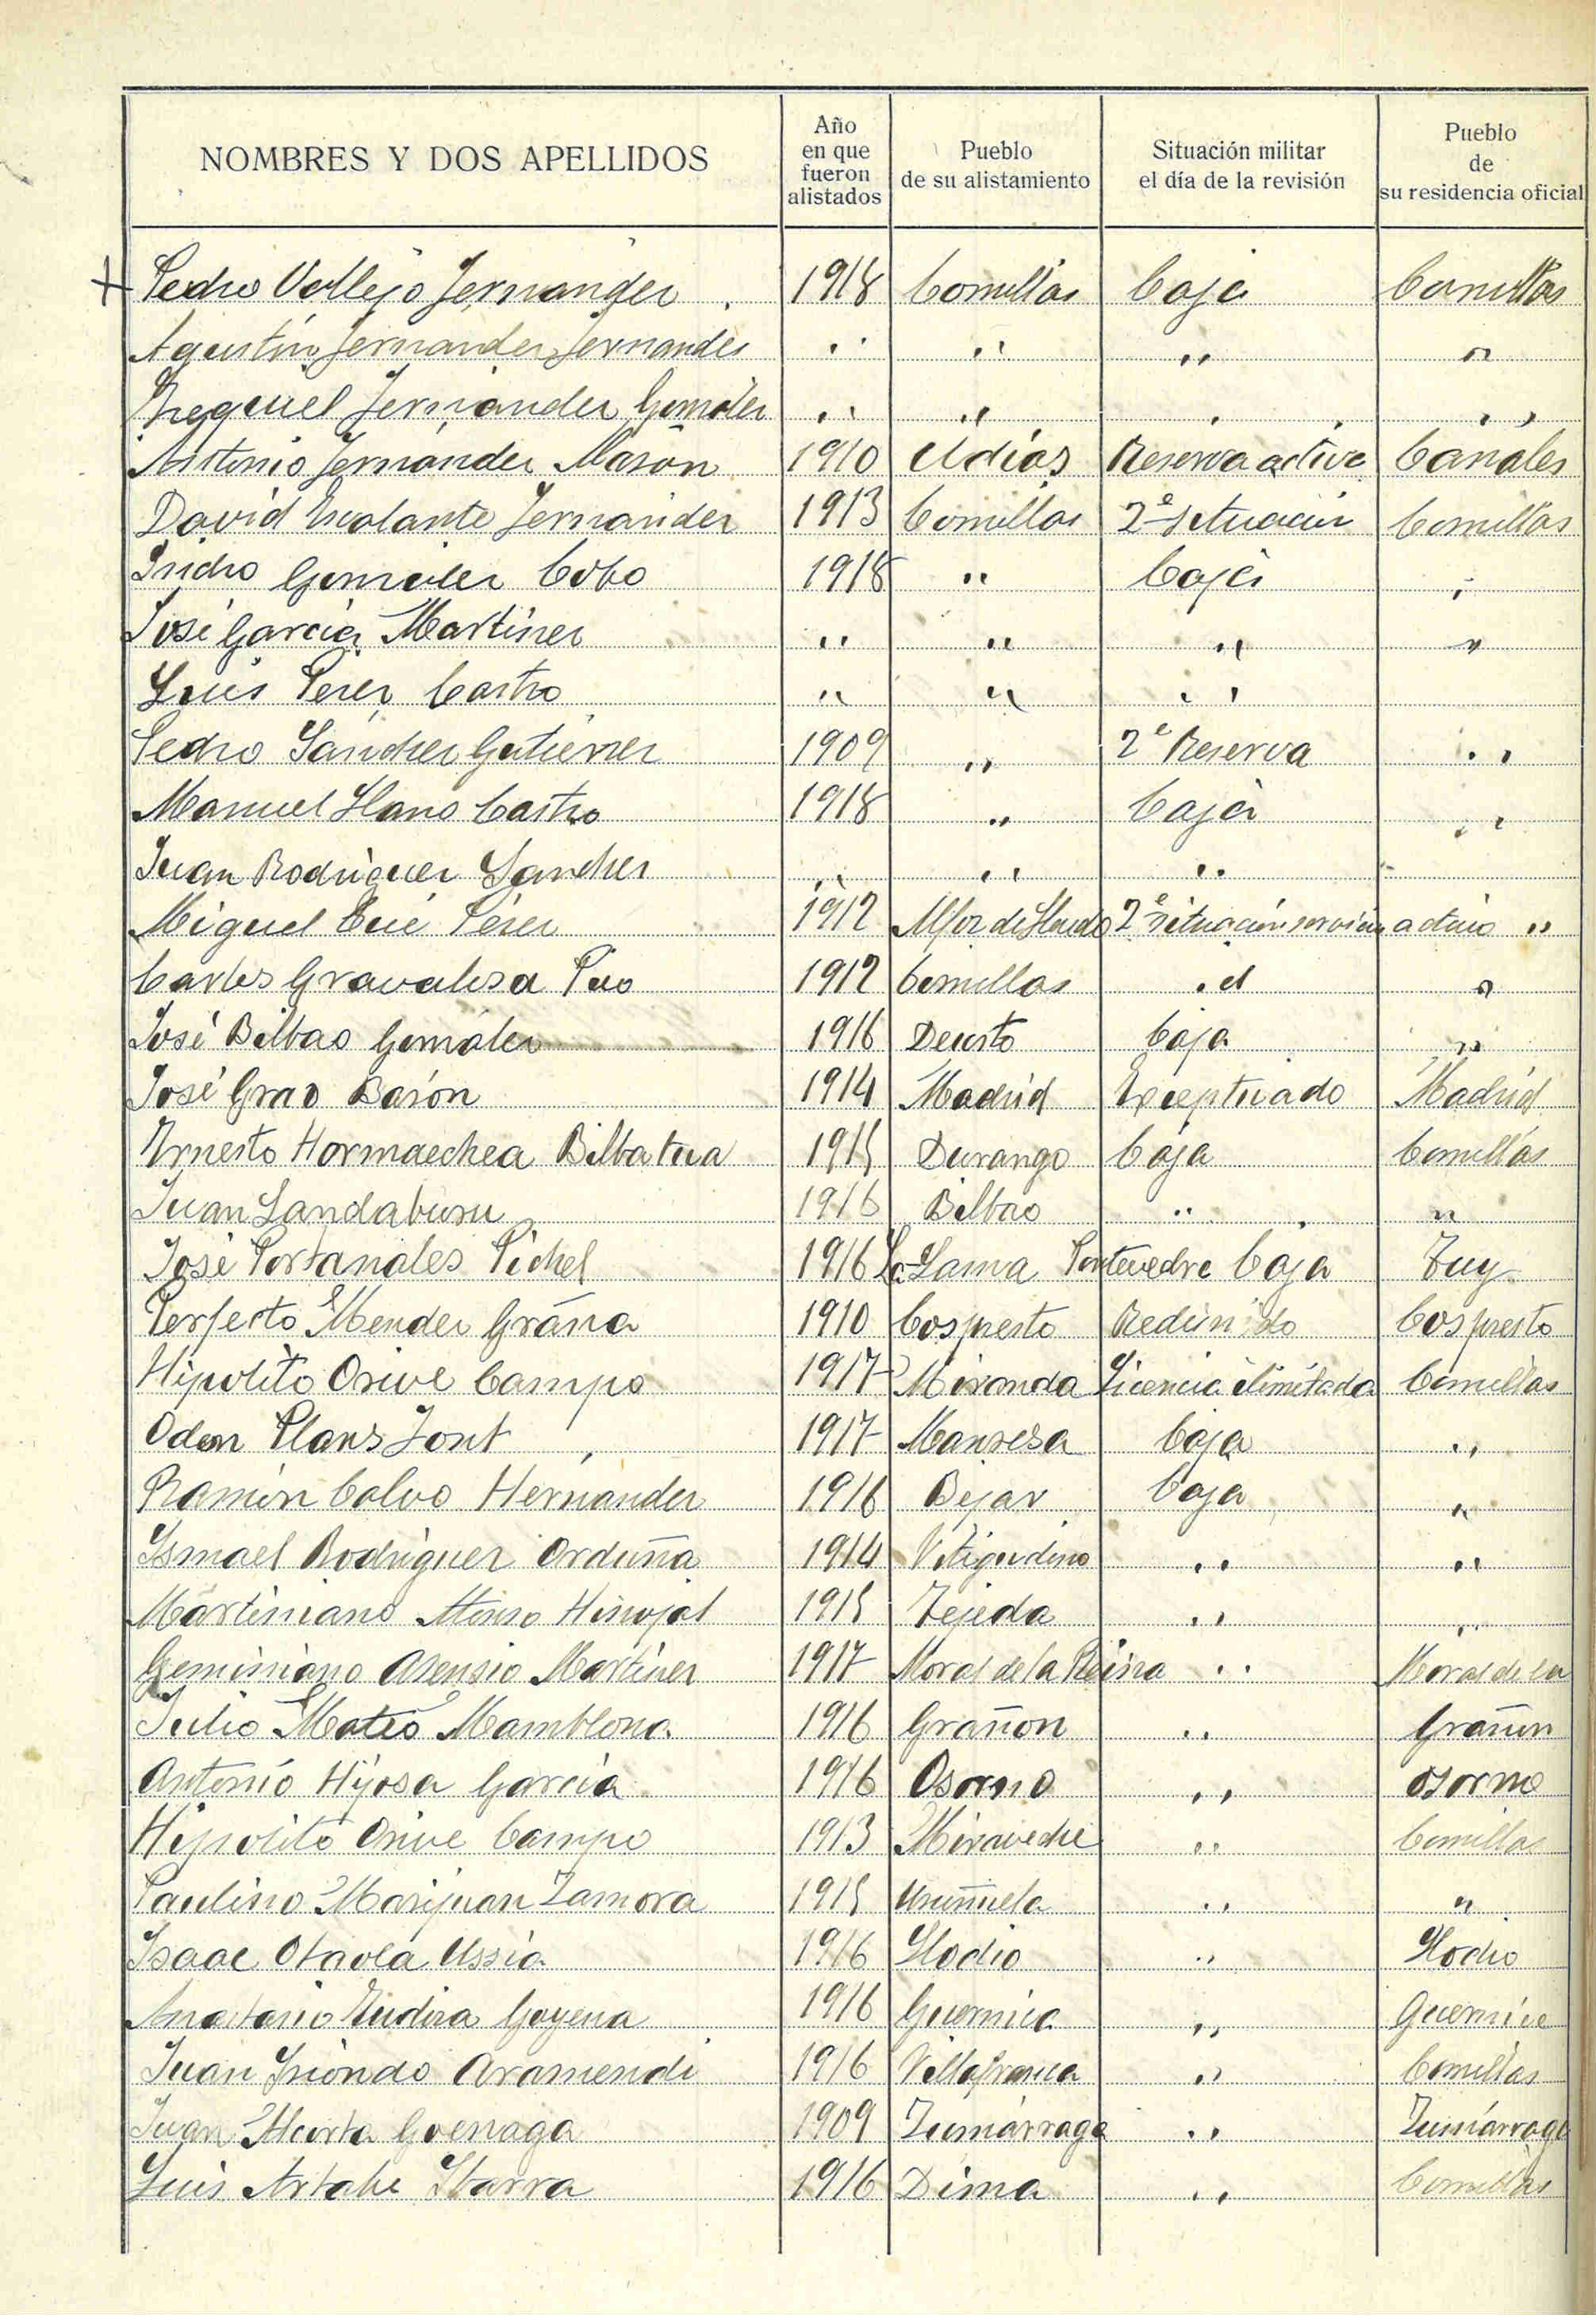 NOMBRES Y DOS APELLIDOS Año en que fueron alistados Pueblo de su alistamiento Situación militar el día de la revisión Pueblo de su residencia oficial
Pedro Vallejo Fernandez 1918 Comillas Caja Comillas
Agustín Fernandez Fernandez " " " "
Ezequiel Fernández González " " " "
Antonio Fernández Masón 1910 Udías Reserva activa Canales
David Escalante Fernández 1913 Comillas 2ª situación Comillas
Isidro González Cobo 1918 " Caja "
José García Martinez " " " "
Luis Perez Castro " " "
Pedro Sánchez Gutierrez 1909 " 2ª Reserva "
Manuel Llano Castro 1918 " Caja "
Juan Rodríguez Sanchez " " "
Miguel Pérez 1912 Alfoz de Lloredo 2ª situación servicio activo "
Carlos Gravalosa 1912 Comillas id "
José Bilbao González 1916 Deusto Caja "
José Grao Barón 1914 Madrid Exceptuado Madrid
Ernesto Hormaechea Bilbatua 1915 Durango Caja Comillas
Juan Landaburu 1916 Bilbao " "
José Portanales Pichel 1916 La Lama Pontevedra Caja Tuy
Perfecto Mendez Graña 1910 Cospresto Redimido Cospresto
Hipólito Orive Campo 1917 Miranda Licencia ilimitada Comillas
Odon Plans Font 1917 Manresa Caja "
Ramón Calvo Hernández 1916 Bejar Caja "
Ismael Rodríguez Orduña 1914 Vitigudino " "
Martiniano Alonso Hinojal 1915 Tejeda " "
Geminiano Asensio Martínez 1917 Moral de la Reina " Moral de la
Julio Mateo Mamblona 1916 Grañon " Grañon
Antonio Hijosa García 1916 Osorno " Osorno
Hipolito Orive Campo 1913 Miraveche " Comillas
Paulino Marijuan Zamora 1915 Uruñuela " "
Isaac Otaola Ussia 1916 Llodio " Llodio
Anastasio Goyena 1916 Guernica " Guernica
Juan Iriondo Aramendi 1916 Villafranca " Comillas
Juan Alcorta Goenaga 1909 Zumárraga " Zumárraga
Luis Artabe Ibarra 1916 Dima " Comillas